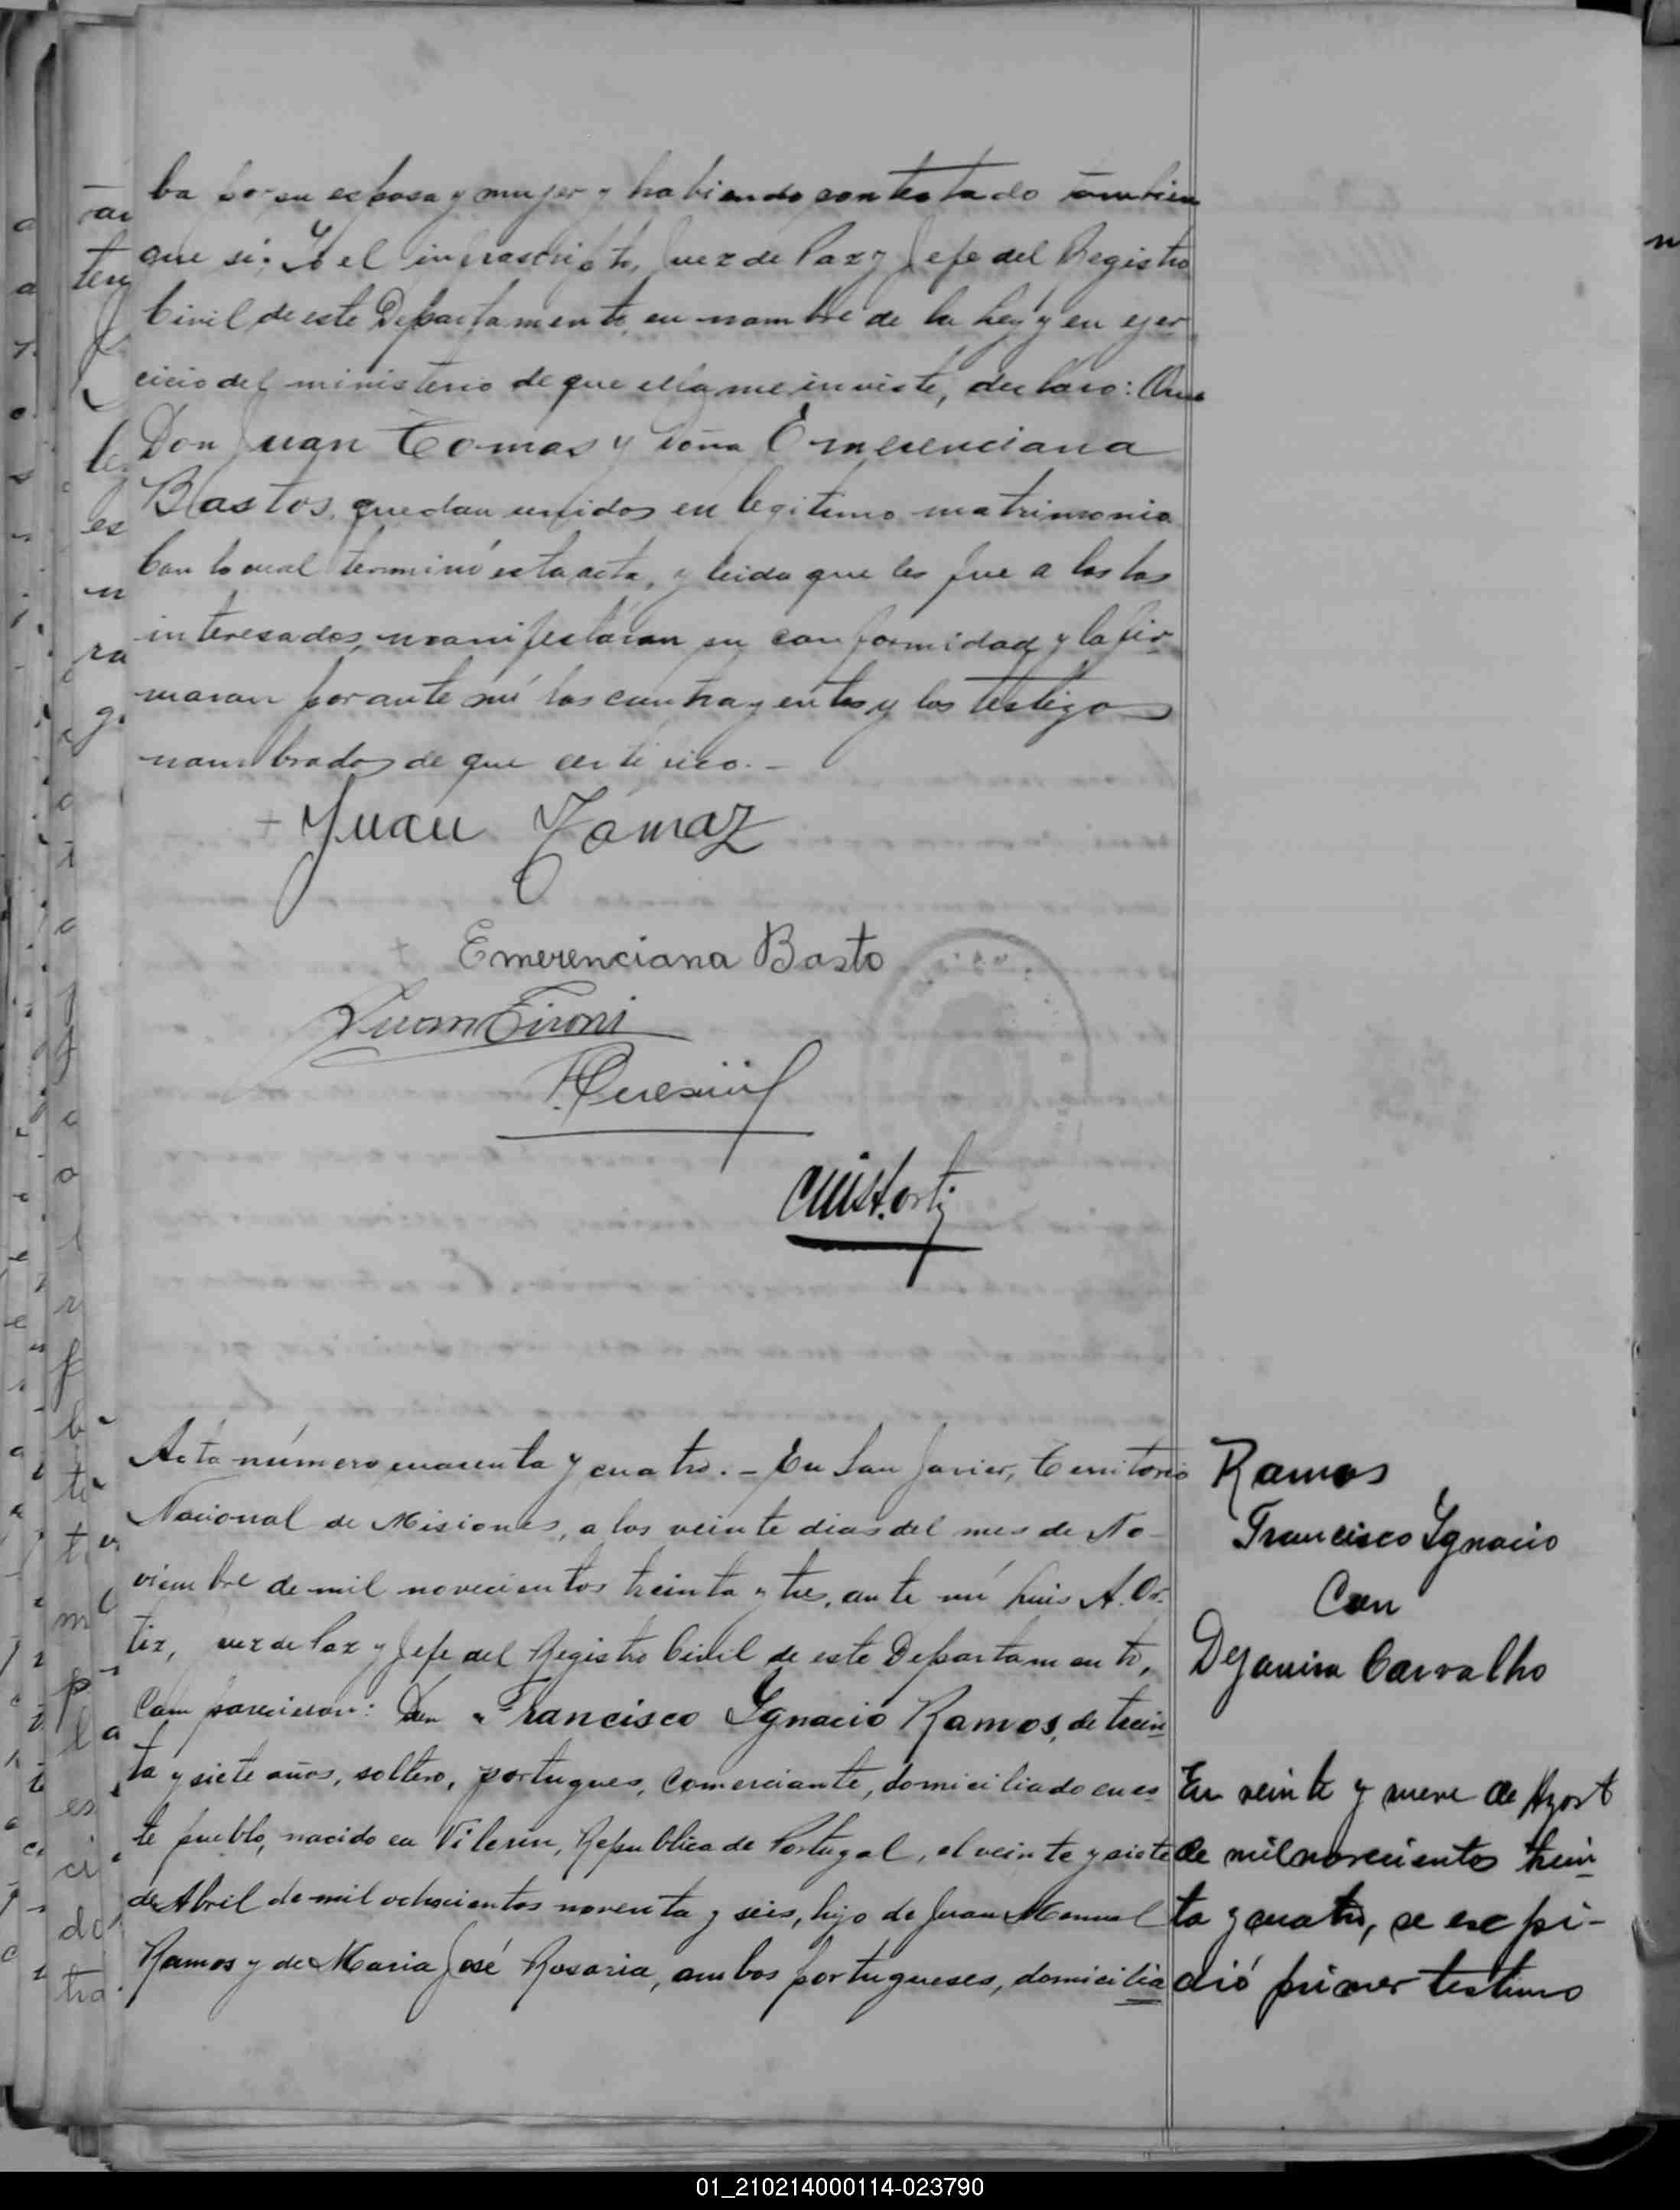 ba por su esposa y mujer y habiendo contestado tambien
que si: Yo el infrascripto, Juez de Paz y Jefe del Registro
Civil de este Departamento, en nombre de la Ley y en ejer
cicio del ministerio de que ella me inviste, declaro: Que
Don Juan Tomas y doña Emerenciana
Bastos, quedan unidos en legitimo matrimonio
Con lo cual terminó esta acta, y leida que les fue a los los
interesados, manifestaron su conformidad y la fir
maron por ante mi los contrayentes y los testigos
nombrados de que certifico.-
Juan Tomaz
Emerenciana Basto
Juan
Acta número cuarenta y cuatro.- En San Javier, Territorio
Nacional de Misiones, a los veinte dias del mes de No-
viembre de mil novecientos treinta y tres, ante mi Luis A. Or-
tiz, Juez de Paz y Jefe del Registro Civil de este Departamento,
Comparecieron: Don Francisco Ygnacio Ramos, de trein
ta y siete años, soltero, portugues, comerciante, domiciliado en es
te pueblo, nacido en Republica de Portugal, el veinte y siete
de Abril de mil ochocientos noventa y seis, hijo de Juan Manuel
Ramos y de Maria José Rosaria, ambos portugueses, domicilia
Ramos
Francisco Ygnacio
Con
Dejanira Carvalho
En veinte y nueve de Agost
de mil novecientos trein
ta y cuatro, se expi-
dió primer testimo
01_210214000114-023790